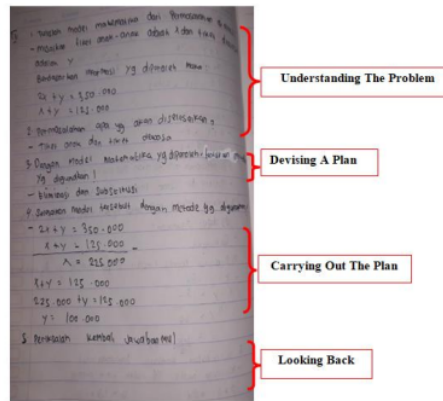 1. Tuliskan model matematika dari Permasalahan
- misalkan tiket anak-anak adalah x dan tiket dewasa
adalah y
Berdasarkan informasi yg diperoleh maka
2x + y = 350.000
x + y = 125.000
2. Permasalahan apa yg akan diselesaikan?
- Tiket anak dan tiket dewasa
3. Dengan model matematika yg diperoleh
yg digunakan!
- Eliminasi dan Substitusi
4. model tersebut dengan metode yg digunakan
- 2x + y = 350.000
x + y = 125.000 -
x = 225.000
x + y = 125.000
225.000 + y = 125.000
y = 100.000
5. Periksalah kembali jawabanmu!
Understanding The Problem
Devising A Plan
Carrying Out The Plan
Looking Back